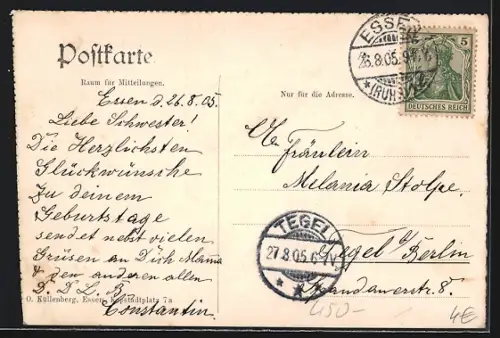 Postkarte
Raum für Mitteilungen.
Nur für die Adresse.
Essen d. 26.8.05
Liebe Schwester!
Die Herzlichsten
Glückwünsche
zu deinem
Geburtstage
sendet nebst vielen
Grüsen an Dich Mama
& den anderen allen
D. D L. B.
Constantin
O. Küllenberg, Essen, Kopstadtplatz 7a
ESSEN
26.8.05.
(RUHR)
5
DEUTSCHES REICH
Fräulein
Melania Stolpe.
Tegel b/Berlin
8.
TEGEL
27.8.05.6-7V.
450-
4€